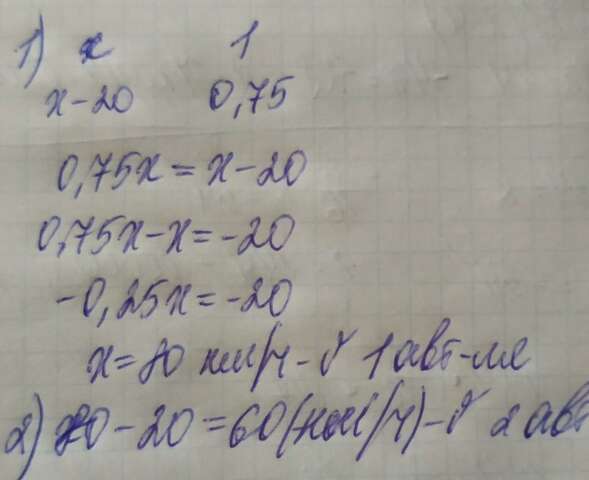 1) x 1
x-20 0,75
0,75x = x-20
0,75x-x = -20
-0,25x = -20
x = 80 км/ч - v 1 авт-ля
2) 80-20 = 60(км/ч) - v 2 авт